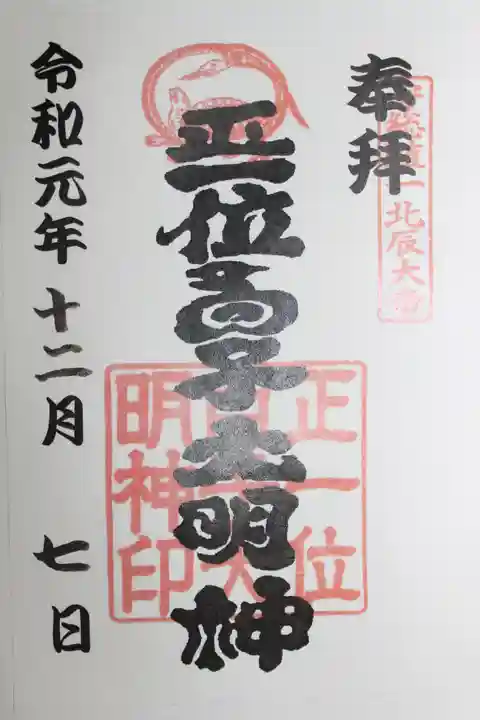 奉拝
北辰大
正一位子大明神
正一位
大
明神印
令和元年十二月七日